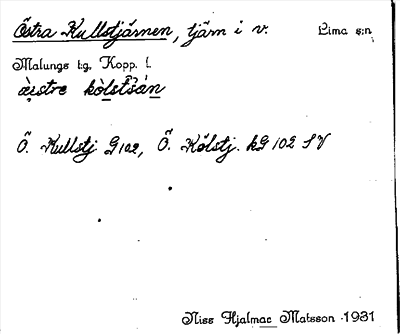 Östra Kullstjärnen, tjärn i v. Lima s:n
Malungs t:g, Kopp. l.
Ö. Kullstj G 102, Ö. Kölstj. kG 102 SV
Niss Hjalmar Matsson 1931